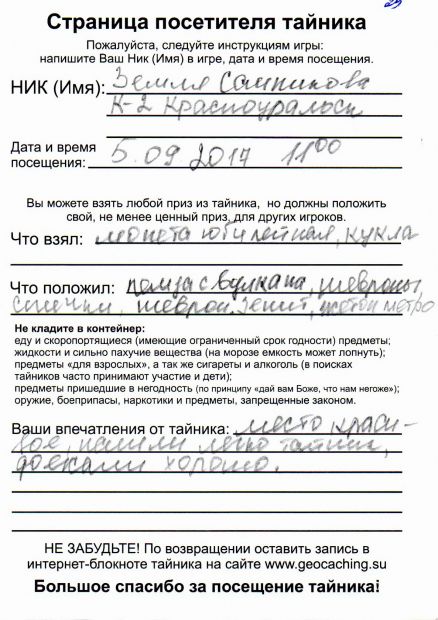 Страница посетителя тайника
Пожалуйста, следуйте инструкциям игры:
напишите Ваш Ник (Имя) в игре, дата и время посещения.
НИК (Имя): Земля
К-2 Красноуральск
Дата и время
посещения: 5.09 2017 11 00
Вы можете взять любой приз из тайника, но должны положить
свой, не менее ценный приз, для других игроков.
Что взял: монета юбилейная, кукла
Что положил: пемза с вулкана, шевроны,
спички, шеврон Зенит, жетон метро
Не кладите в контейнер:
еду и скоропортящиеся (имеющие ограниченный срок годности) предметы;
жидкости и сильно пахучие вещества (на морозе емкость может лопнуть);
предметы «для взрослых», а так же сигареты и алкоголь (в поисках
тайников часто принимают участие и дети);
предметы пришедшие в негодность (по принципу «дай вам Боже, что нам негоже»);
оружие, боеприпасы, наркотики и предметы, запрещенные законом.
Ваши впечатления от тайника: место краси-
вое, нашли легко тайник,
доехали хорошо.
НЕ ЗАБУДЬТЕ! По возвращении оставить запись в
интернет-блокноте тайника на сайте www.geocaching.su
Большое спасибо за посещение тайника!